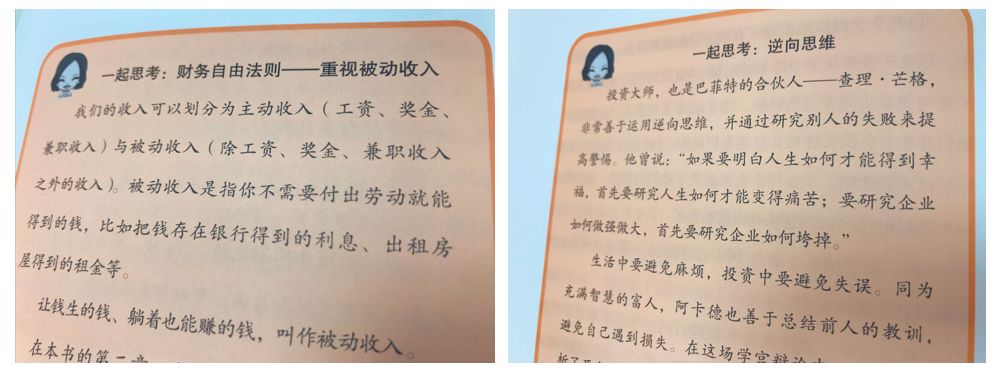 一起思考：财务自由法则——重视被动收入
我们的收入可以划分为主动收入（工资、奖金、
兼职收入）与被动收入（除工资、奖金、兼职收入
之外的收入）。被动收入是指你不需要付出劳动就能
得到的钱，比如把钱存在银行得到的利息、出租房
屋得到的租金等。
让钱生的钱、躺着也能赚的钱，叫作被动收入。
在本书的第一章
一起思考：逆向思维
投资大师，也是巴菲特的合伙人——查理·芒格，
非常善于运用逆向思维，并通过研究别人的失败来提
高警惕。他曾说：“如果要明白人生如何才能得到幸
福，首先要研究人生如何才能变得痛苦；要研究企业
如何做强做大，首先要研究企业如何垮掉。”
生活中要避免麻烦，投资中要避免失误。同为
充满智慧的富人，阿卡德也善于总结前人的教训，
避免自己遇到损失。在这场学宫辩论